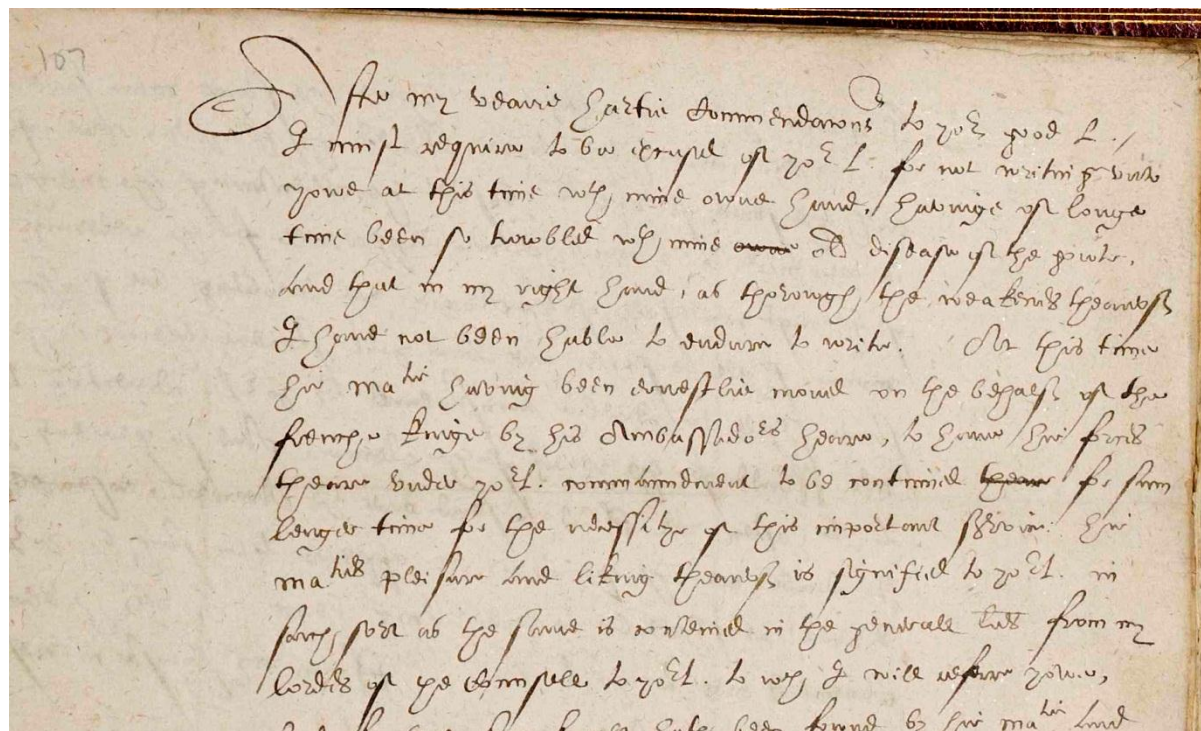 107
After my vearie hartie Commendacons to yor good L.
I must require to be excused of yor L. for not writing unto
yowe at this time wth mine owne hand, having of longe
time been so trowbled wth mine owne old disease of the gowte,
and that in my right hand, as thorowgh the weaknes theareof
I have not been hable to endure to write. At this time
hir matie having been earnestlie moved on the behalf of the
frenche kinge by his Ambassadors heare, to have hir forces
theare under yor L. commaundement to be continued theare for sum
lenger time for the necessitye of this important service: hir
maties pleasure and liking theareof is signified to yor L. in
such sort as the same is conteined in the generall lres from my
lordes of the Counsell to yor L. to wch I will referre yowe,
hath been fownd by hir matie and